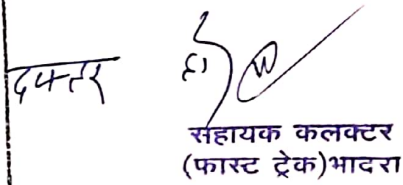 दफ्तर हो
सहायक कलक्टर
(फास्ट ट्रेक)भादरा